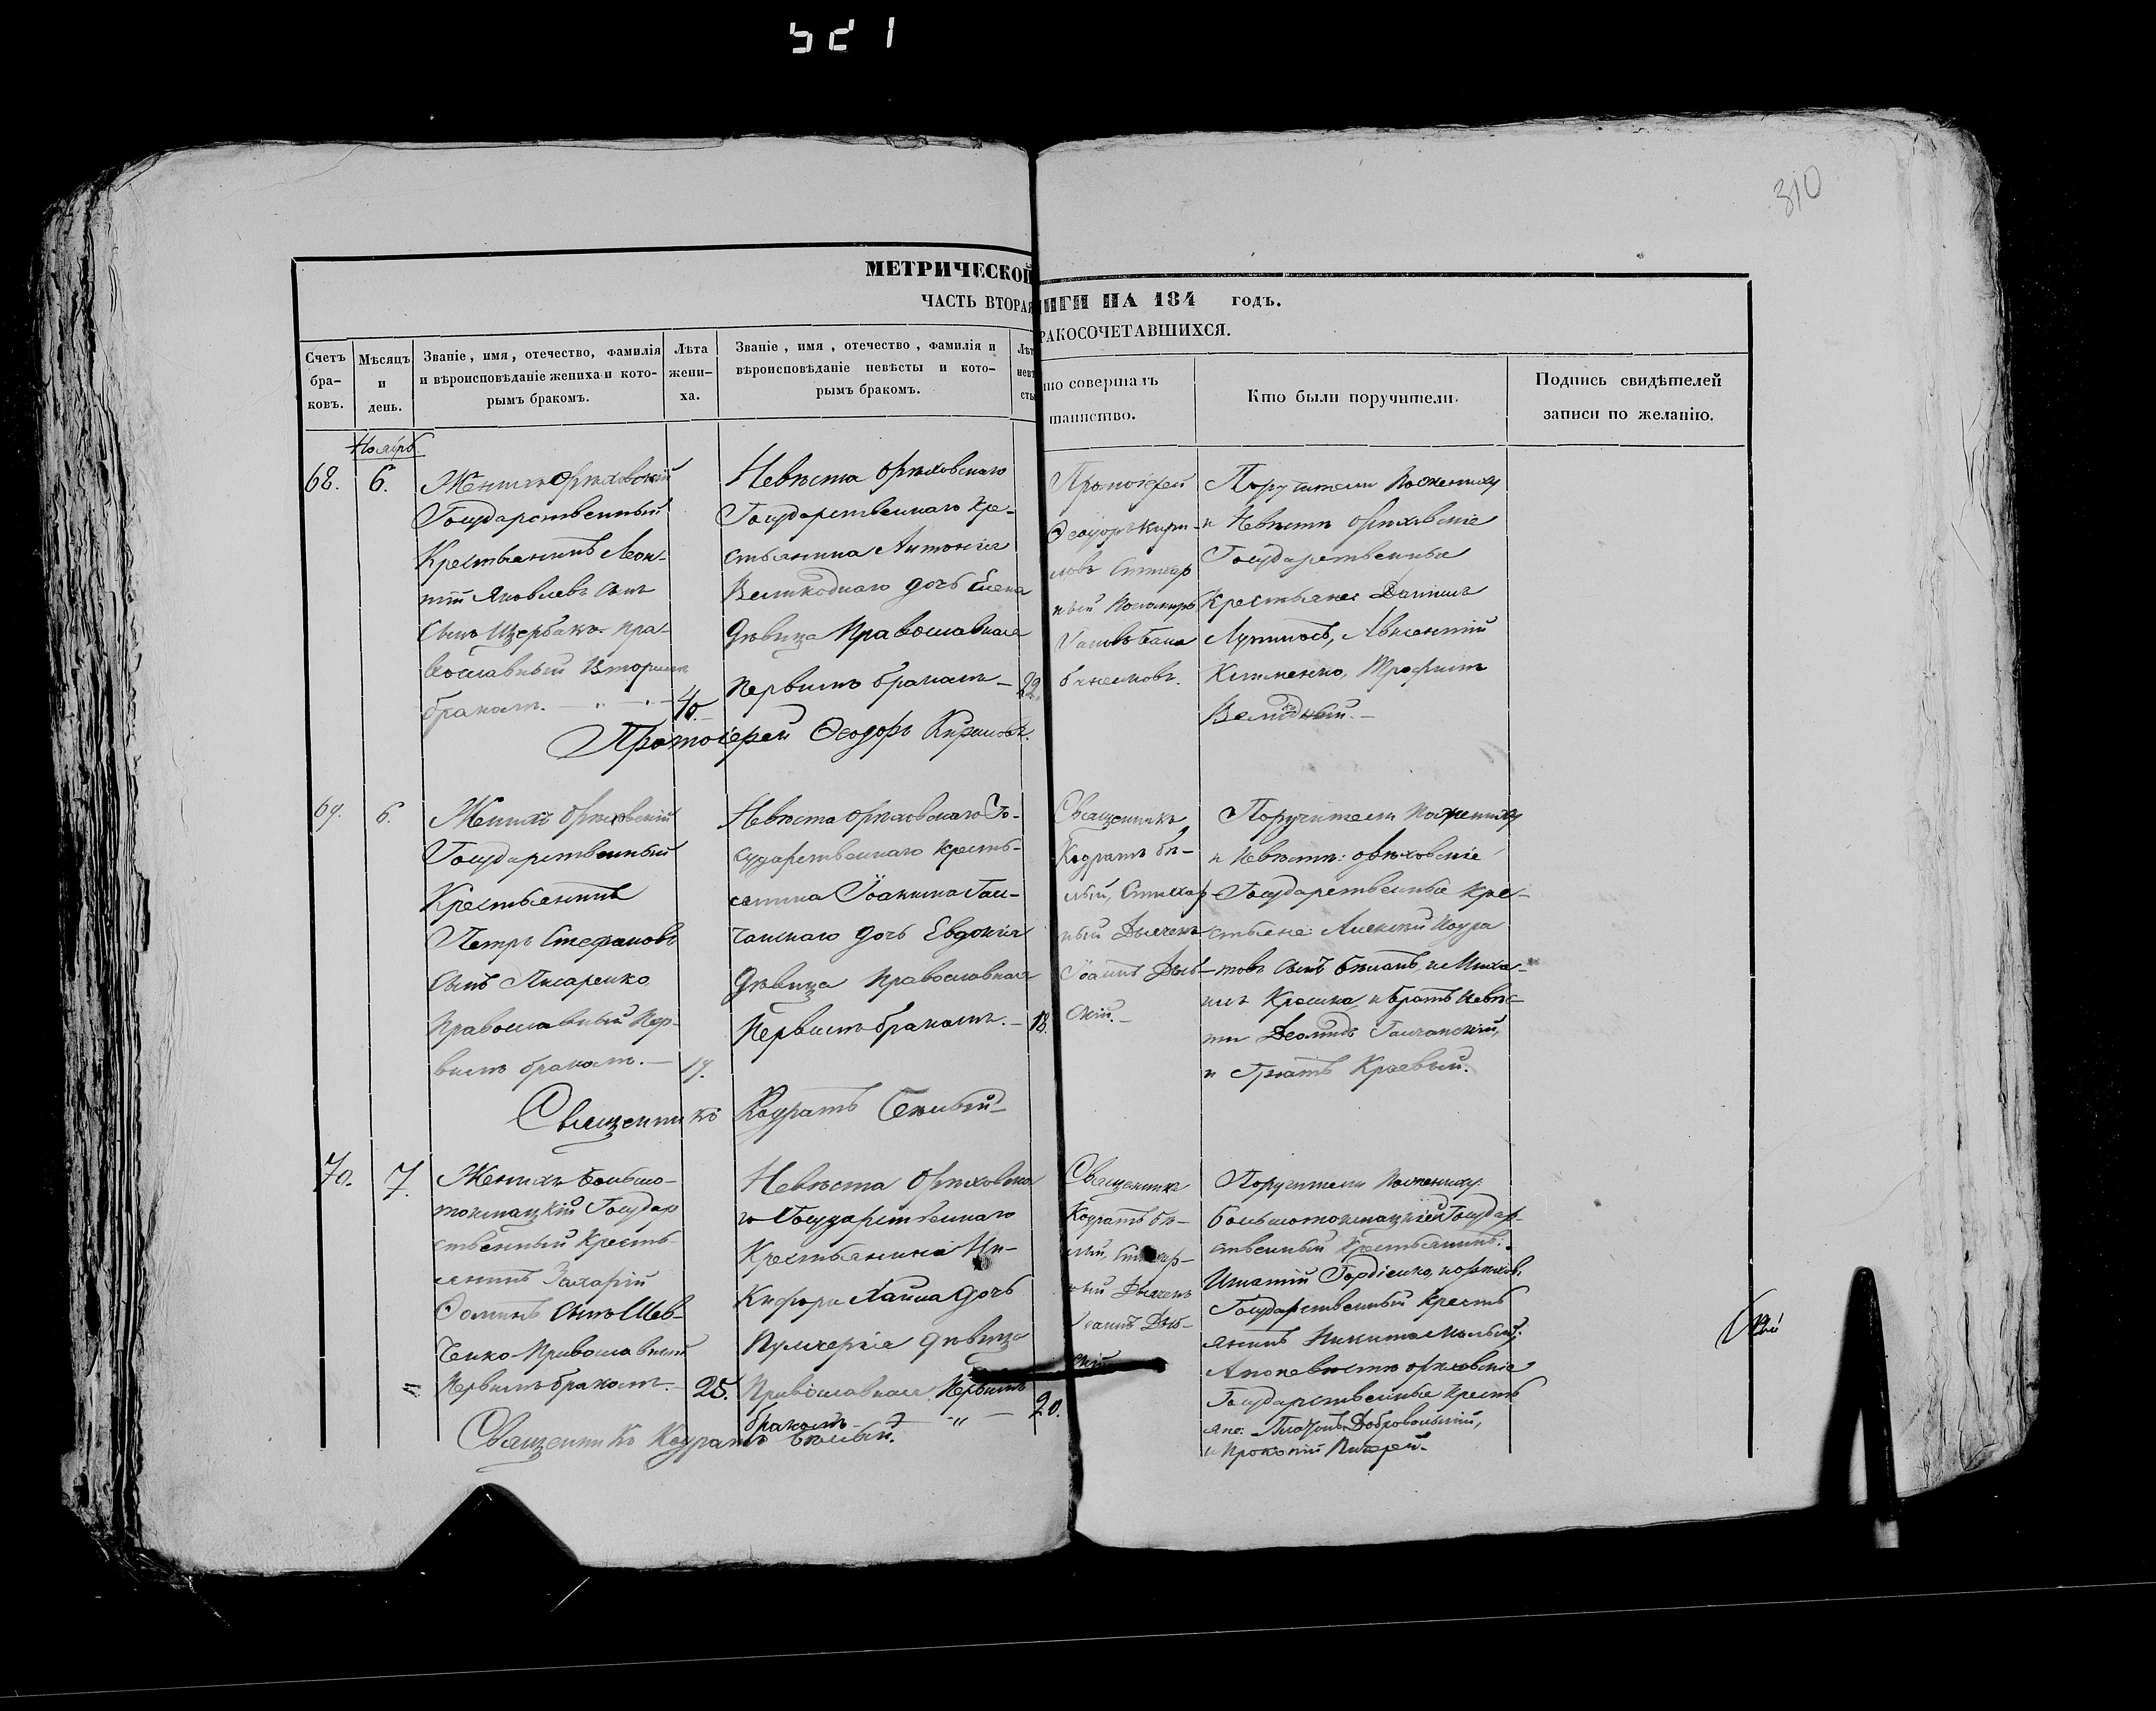 521
310
МЕТРИЧЕСКОЙ
ИГИ НА 184 годъ.
ЧАСТЬ ВТОРАЯ
РАКОСОЧЕТАВШИХСЯ.
Счетъ бра- ковъ.
Мѣсяцъ и день.
Званіе, имя, отечество, фамилія и вѣроисповѣданіе жениха и кото- рымъ бракомъ.
Лѣта жени- ха.
Званіе, имя, отечество, фамилія и вѣроисповѣданіе невѣсты и кото- рымъ бракомъ.
Лѣт невѣ сты
то совершалъ таинство.
Кто были поручители.
Подпись свидѣтелей записи по желанію.
Ноябрь
68.
6.
Женихъ Орѣховскій
Государственный
Крестьянинъ Леон-
тій Яковлевъ сынъ
сынъ Щербакъ Пра-
вославный Вторымъ
бракомъ.
40.
Невѣста Орѣховскаго
Государственнаго Кре-
стьянина Антонія
Великоднаго дочь Елена
Дѣвица Православная
Первымъ бракомъ
22.
Протоіерей
Ѳеодоръ Кири-
ловъ Стихар
ный Пономарь
Поручители По жениху
и Невѣстѣ Орѣховскіе
Государственные
Крестьяне Даніилъ
Авксентій
Клименко, Трофимъ
Протоіерей Ѳеодоръ Кириловъ.
69.
6.
Женихъ Орѣховскій
Государственный
Крестьянинъ
Петръ Стефановъ
сынъ Писаренко
Православный Пер-
вымъ бракомъ.
19.
Невѣста Орѣховскаго Го-
сударственнаго Кресть-
янина Іоанна Гал-
чанскаго дочь Евдокія
Дѣвица Православная
Первымъ бракомъ.
18.
Священникъ
Кодратъ Бѣ-
лый, Стихар
ный Дьячекъ
Іоаннъ
скій.
Поручители По жениху
и Невѣстѣ: Орѣховскіе
Государственные Кре-
стьяне Алексѣй Кодра
товъ сынъ и Миха-
илъ и братъ Невѣс-
ты Галчанскій,
и Игнатъ Краевый.
Священникъ Кодратъ Бѣлый
70.
7.
Женихъ Большо-
токмацкій Государ
ственный Кресть-
янинъ Захарій
Ѳоминъ сынъ Шев-
ченко Православный
Первымъ бракомъ.
25.
Невѣста Орѣховска
го Государственнаго
Крестьянина Ни-
кифора дочь
Пульхерія Дѣвица
Православная Первымъ
бракомъ
20.
Священникъ
Кодратъ Бѣ-
лый, Стихар-
ный Дьячекъ
Іоаннъ
скій
Поручители По жениху:
Большотокмацкій Государ-
ственный Крестьянинъ:
Игнатій Гордіенко, и орѣхов:
Государственный Кресть
янинъ Никита Малый:
А по невѣстѣ Орѣховскіе
Государственные Кресть
яне: Добровольскій,
и Прокопій
Священникъ Кодратъ Бѣлый.